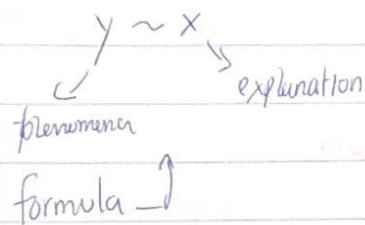 y ~ x
explanation
phenomena
formula